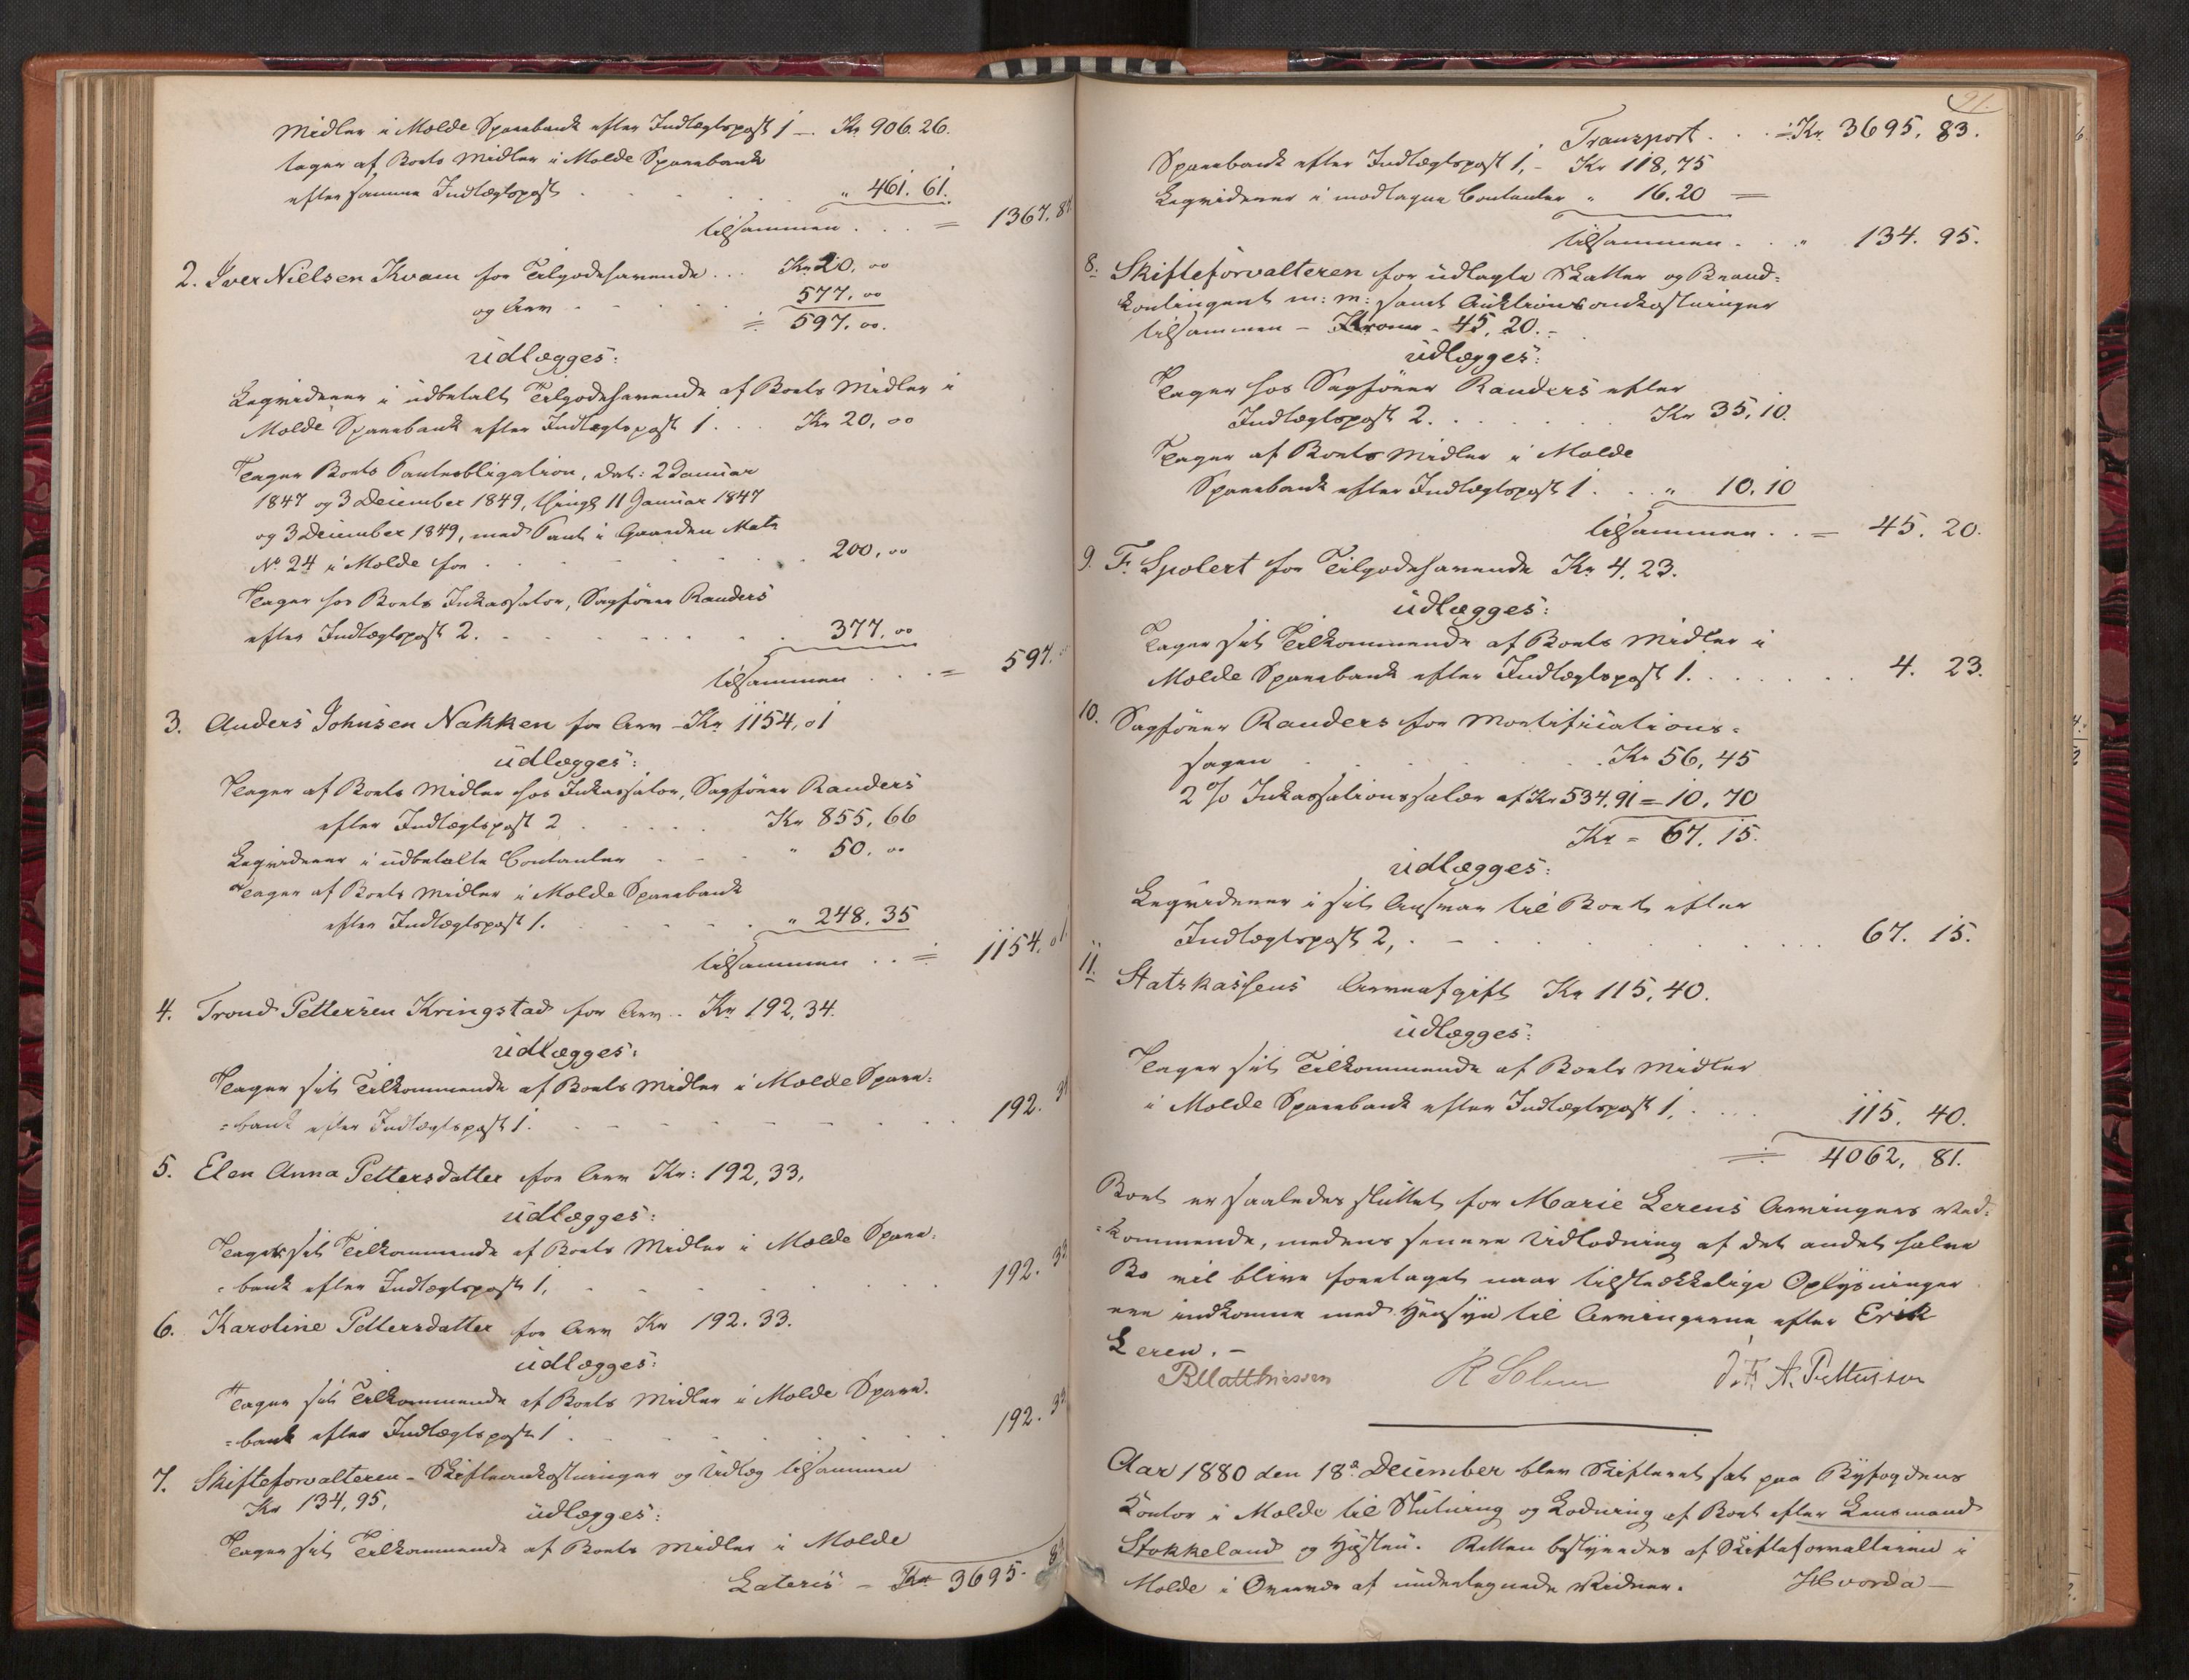 Midler i Molde Sparebank efter Indtægtspost 1 – Kr 906.26.
tager af Boets Midler i Molde Sparebank
efter samme Indtægtspost . . . „ 461. 61.
tilsammen . . . = 1367. 87
2. Iver Nielsen Kvam for Tilgodehavende . . . Kr 20, 00
og Arv . . . 577. 00
= 597. 00.
udlægges:
Liqviderer i udbetalt Tilgodehavende af Boets Midler i
Molde Sparebank efter Indtægtspost 1 . . . Kr 20, 00
Tager Boets Panteobligation, dat: 2 Januar
1847 og 3 December 1849, thingl 11 Januar 1847
og 3 December 1849, med Pant i Gaarden Matr
No 24 i Molde for . . . 200, 00
Tager hos Boets Inkassator, Sagfører Randers
efter Indtægtspost 2. . . . 377. 00
tilsammen . . . = 597.
3. Anders Johnsen Nakken for Arv – Kr 1154, 01
udlægges:
Tager af Boets Midler hos Inkassator, Sagfører Randers
efter Indtægtspost 2 . . . Kr 855, 66
Liqviderer i udbetalte Contanter . . . „ 50. 00
Tager af Boets Midler i Molde Sparebank
efter Indtægtspost 1. . . . „ 248. 35
tilsammen . . = 1154. 01
4. Trond Pettersen Kringstad for Arv . . Kr 192, 34.
udlægges:
Tager sit Tilkommende af Boets Midler i Molde Spare-
=bank efter Indtægtspost 1. . . . 192. 34
5. Elen Anna Pettersdatter for Arv Kr: 192, 33,
udlægges:
Tager sit Tilkommende af Boets Midler i Molde Spare-
=bank efter Indtægtspost 1, . . . 192. 33
6. Karoline Pettersdatter for Arv Kr 192. 33.
udlægges:
Tager sit Tilkommende af Boets Midler i Molde Spare-
=bank efter Indtægtspost 1 . . . 192. 33
7. Skifteforvalteren – Skifteomkostninger og Udlæg tilsammen
Kr 134, 95, udlægges:
Tager sit Tilkommende af Boets Midler i Molde
Lateris – Kr 3695. 83
91.
Transport . . . = Kr 3695. 83.
Sparebank efter Indtægtspost 1, – Kr 118, 75
Liqviderer i modtagne Contanter „ 16.20 =
tilsammen . . „ 134. 95.
8. Skifteforvalteren for udlagte Skatter og Brand=
kontingent m: m: samt Auktionsomkostninger
tilsammen – Kroner – 45, 20. –
udlægges:
Tager hos Sagfører Randers efter
Indtægtspost 2. . . . Kr 35, 10.
Tager af Boets Midler i Molde
Sparebank efter Indtægtspost 1 . . . „ 10. 10
tilsammen . . = 45. 20.
9. F. Spolert for Tilgodehavende Kr 4, 23.
udlægges:
Tager sit Tilkommende af Boets Midler i
Molde Sparebank efter Indtægtspost 1. . . . 4. 23.
10. Sagfører Randers for Mortifications=
sagen . . . Kr 56, 45
2 % Inkassationssalær af Kr 534. 91 = 10. 70
Kr = 67. 15.
udlægges:
Liqviderer i sit Ansvar til Boet efter
Indtægtspost 2, . . . 67. 15.
11. Statskassens Arveafgift Kr 115, 40.
udlægges:
Tager sit Tilkommende af Boets Midler
i Molde Sparebank efter Indtægtspost 1, . . . 115. 40.
= 4062, 81.
Boet er saaledes sluttet for Marie Lerens Arvingers Ved=
=kommende, medens senere Udlodning af det andet halve
Bo vil blive foretaget naar tilstrækkelige Oplysninger
ere indkomne med Hensyn til Arvingerne efter Erik
Leren. –
R Matthiessen R Solem A. Pettersson
Aar 1880 den 18de December blev Skifteret sat paa Byfogdens
Kontor i Molde til Slutning og Lodning af Boet efter Lensmand
Stokkeland og Hustru. Retten bestyredes af Skifteforvalteren i
Molde i Overvær af undertegnede Vidner. Hvorda –